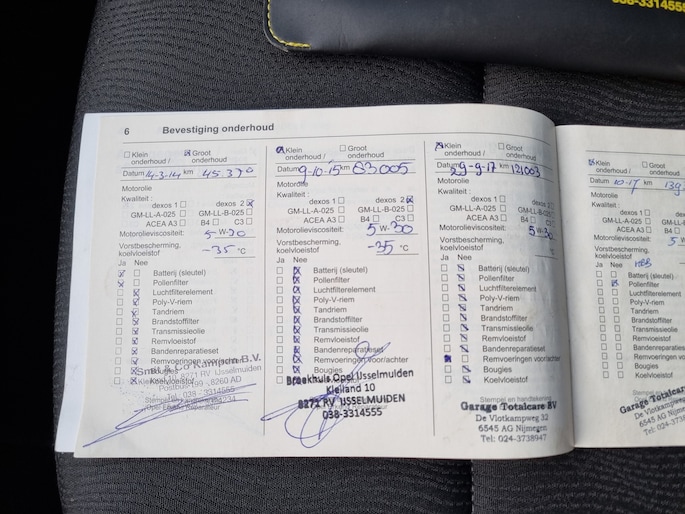 038-3314555
6 Bevestiging onderhoud
Klein onderhoud / Groot onderhoud
Datum 14-3-14 km
Motorolie
Kwaliteit :
dexos 1 dexos 2
GM-LL-A-025 GM-LL-B-025
ACEA A3 B4 C3
Motorolieviscositeit: 5 W-30
Vorstbescherming,
koelvloeistof -35 °C
Ja Nee
Batterij (sleutel)
Pollenfilter
Luchtfilterelement
Poly-V-riem
Tandriem
Brandstoffilter
Transmissieolie
Remvloeistof
Bandenreparatieset
Remvoeringen voor/achter
Bougies
Koelvloeistof
8271 RV IJSSELMUIDEN
8260 AD
Tel. 038 - 3314555
Klein onderhoud / Groot onderhoud
Datum 9-10-15 km 83005
Motorolie
Kwaliteit :
dexos 1 dexos 2
GM-LL-A-025 GM-LL-B-025
ACEA A3 B4 C3
Motorolieviscositeit: 5 W-30
Vorstbescherming,
koelvloeistof -35 °C
Ja Nee
Batterij (sleutel)
Pollenfilter
Luchtfilterelement
Poly-V-riem
Tandriem
Brandstoffilter
Transmissieolie
Remvloeistof
Bandenreparatieset
Remvoeringen voor/achter
Bougies
Broekhuis Opel IJsselmuiden
Kleiland 10
8271 RV IJSSELMUIDEN
038-3314555
Klein onderhoud / Groot onderhoud
Datum 29-9-17 km 121003
Motorolie
Kwaliteit :
dexos 1 dexos 2
GM-LL-A-025 GM-LL-B-025
ACEA A3 B4 C3
Motorolieviscositeit: 5 W-30
Vorstbescherming,
koelvloeistof °C
Ja Nee
Batterij (sleutel)
Pollenfilter
Luchtfilterelement
Poly-V-riem
Tandriem
Brandstoffilter
Transmissieolie
Remvloeistof
Bandenreparatieset
Remvoeringen voor/achter
Bougies
Koelvloeistof
Stempel en handtekening
Garage Totalcare BV
De Vlotkampweg 32
6545 AG Nijmegen
Tel: 024-3738947
Klein onderhoud / Groot onderhoud
Datum 10-17 km 139
Motorolie
Kwaliteit :
dexos 1
GM-LL-A-025
ACEA A3
Motorolieviscositeit: 5
Vorstbescherming,
koelvloeistof
Ja Nee
Batterij (sleutel)
Pollenfilter
Luchtfilterelement
Poly-V-riem
Tandriem
Brandstoffilter
Transmissieolie
Remvloeistof
Bandenreparatie
Remvoeringen
Bougies
Koelvloeistof
Garage Totalcare
De Vlotkampweg
6545 AG Nijmegen
Tel: 024-373